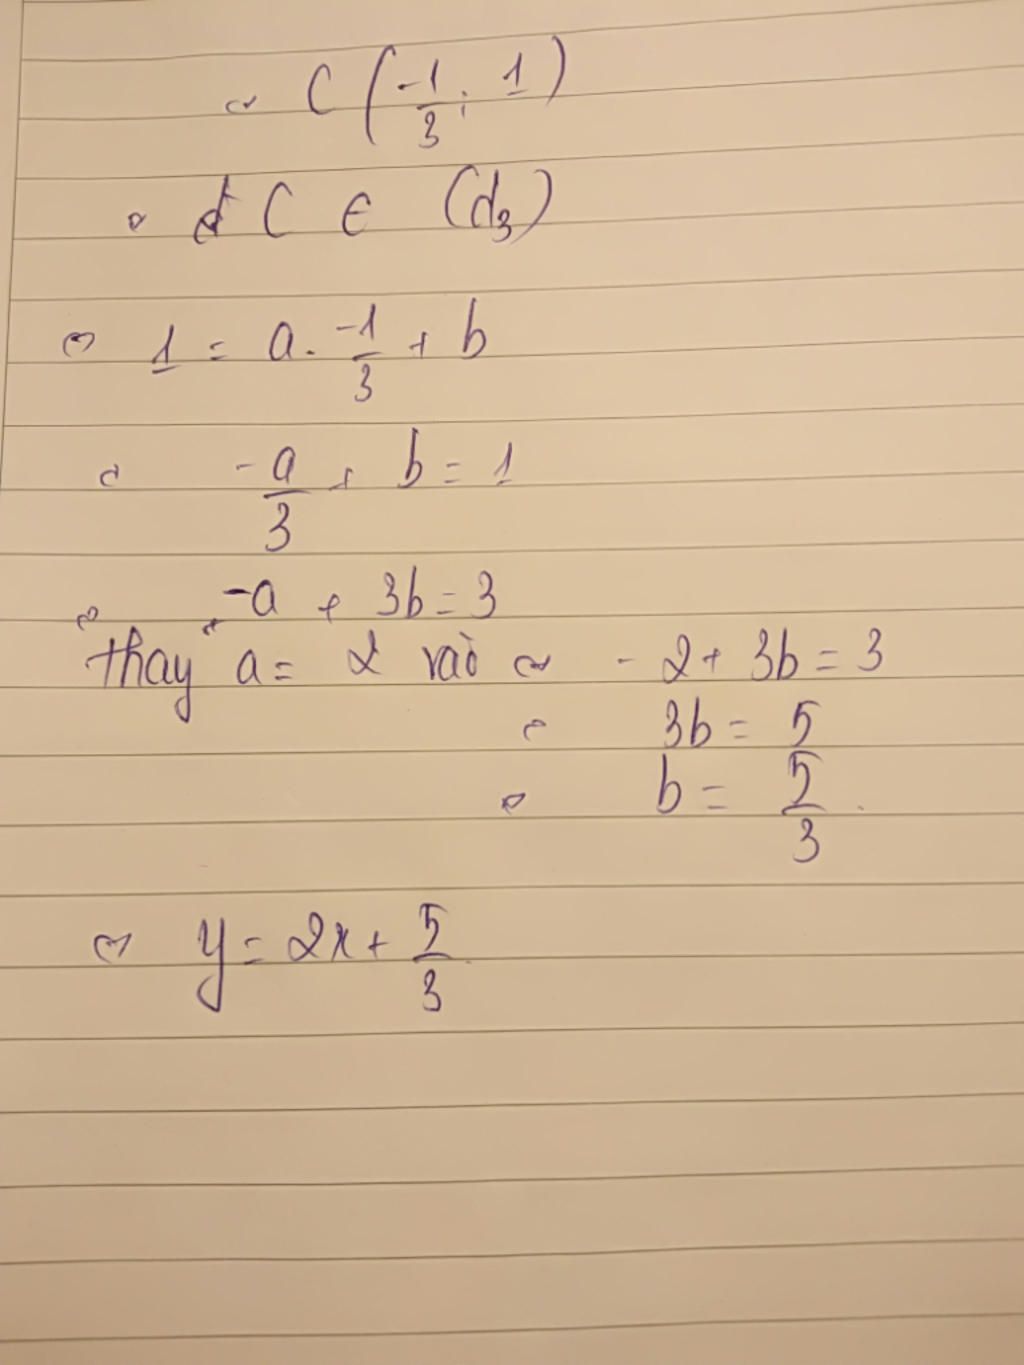 ~ C (-1/3; 1)
C ∈ (d₃)
1 = a. -1/3 + b
-a/3 + b = 1
-a + 3b = 3
thay a = 2 vào ~ - 2 + 3b = 3
3b = 5
b = 5/3
y = 2x + 5/3